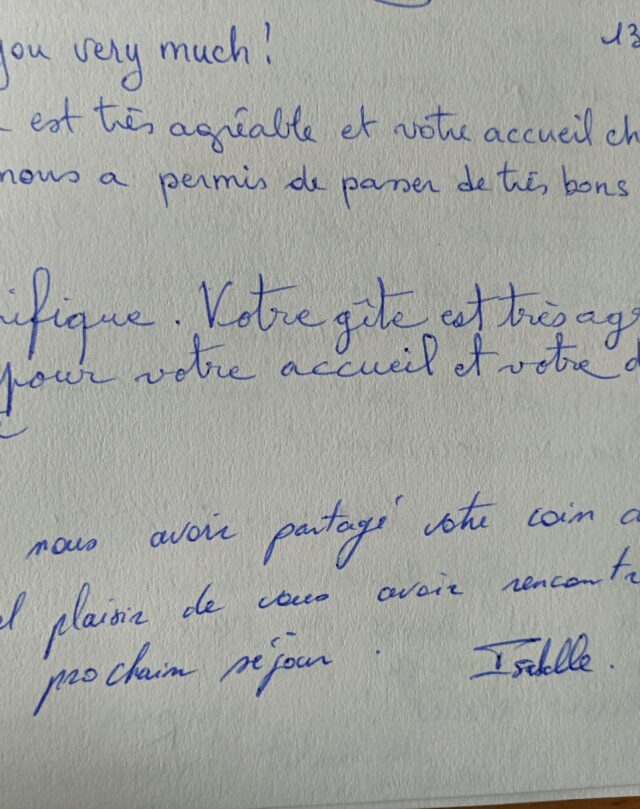 you very much!
13
est très agréable et votre accueil ch
nous a permis de passer de très bons
ifique. Votre gîte est très agr
pour votre accueil et votre d
nous avoir partagé votre coin
el plaisir de vous avoir rencontr
prochain séjour. Isabelle.